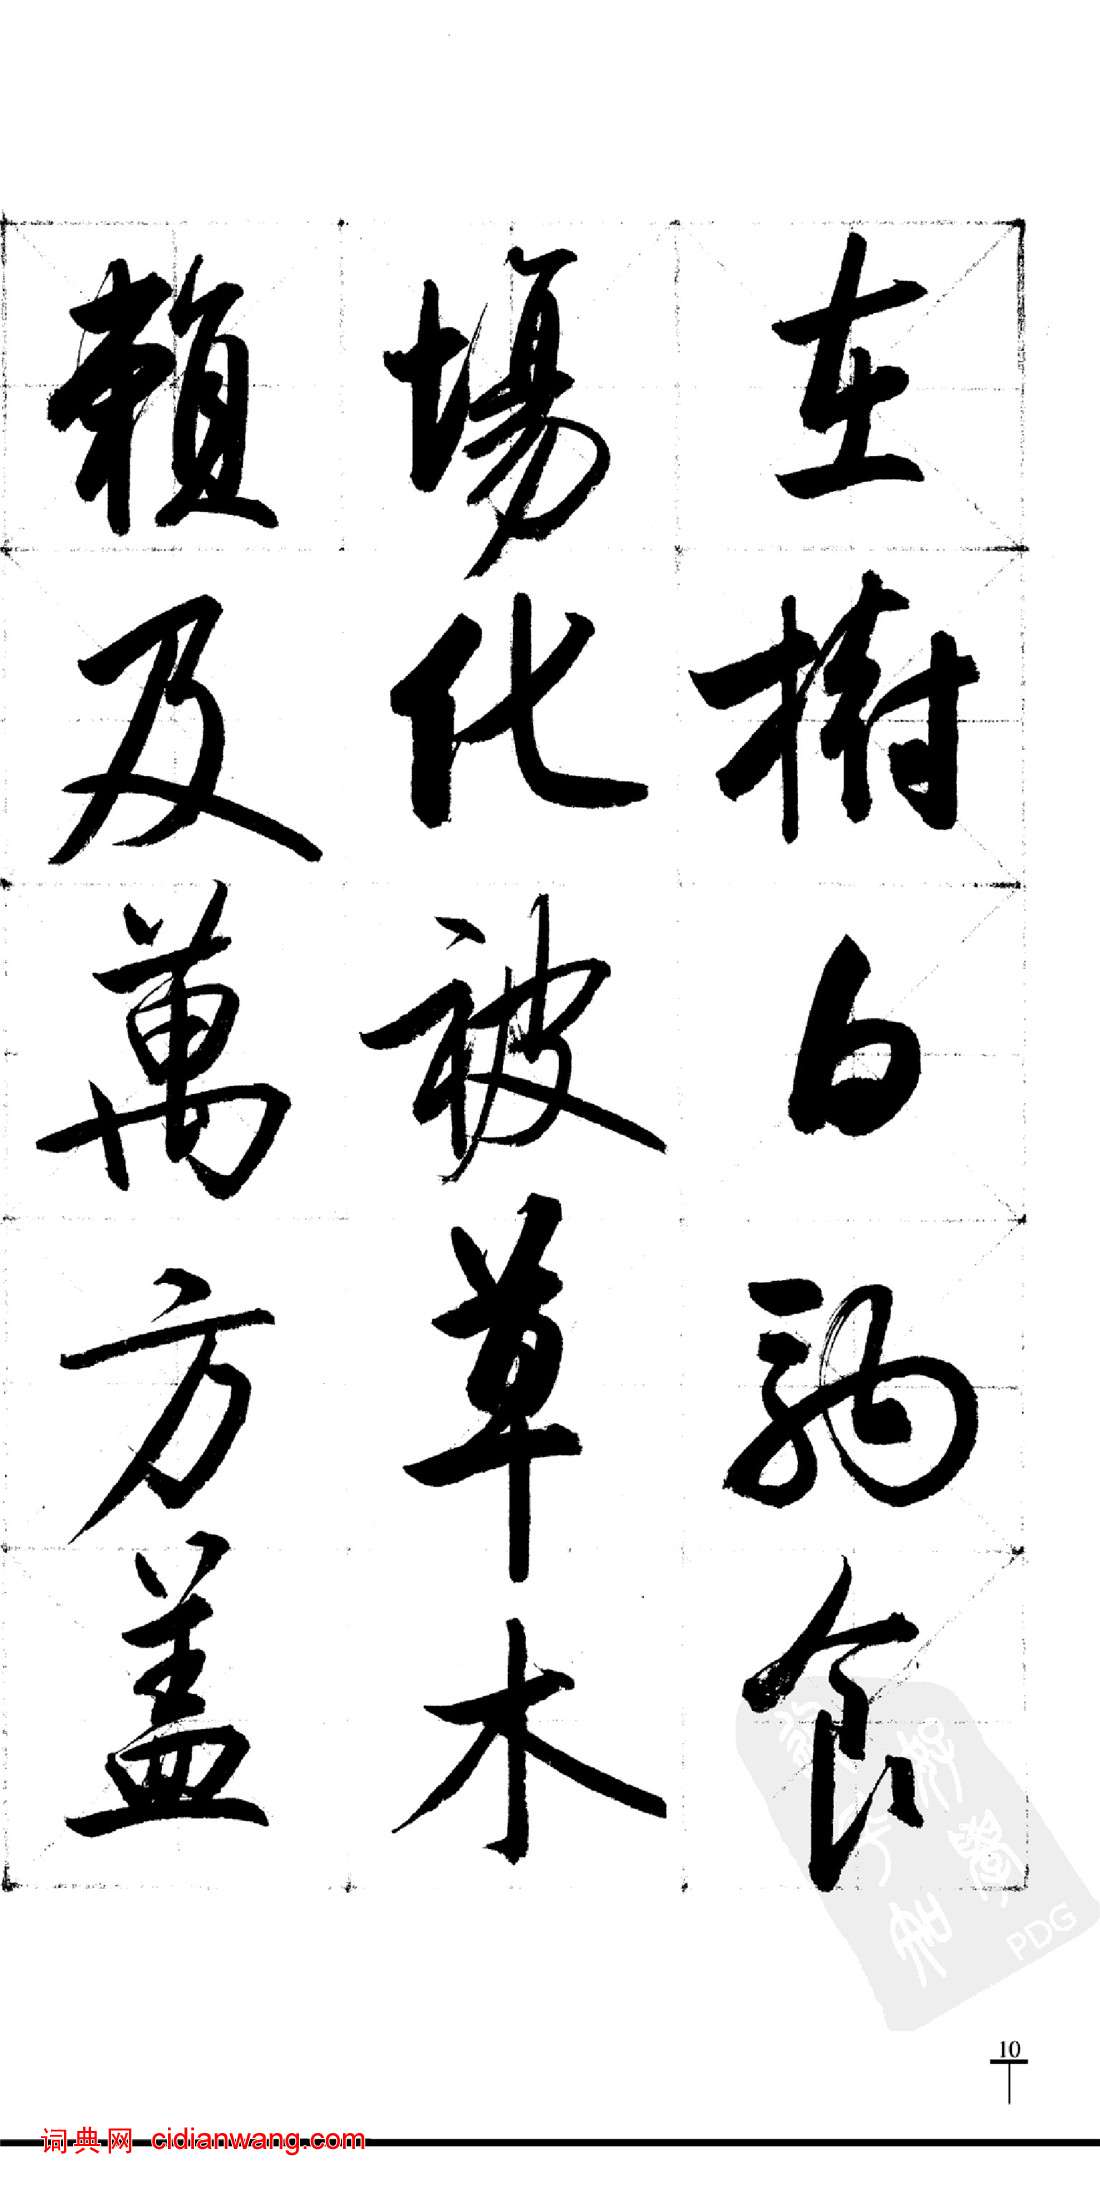 在樹白駒食
場化被草木
賴及萬方盖
PDG
10
词典网 cidianwang.com